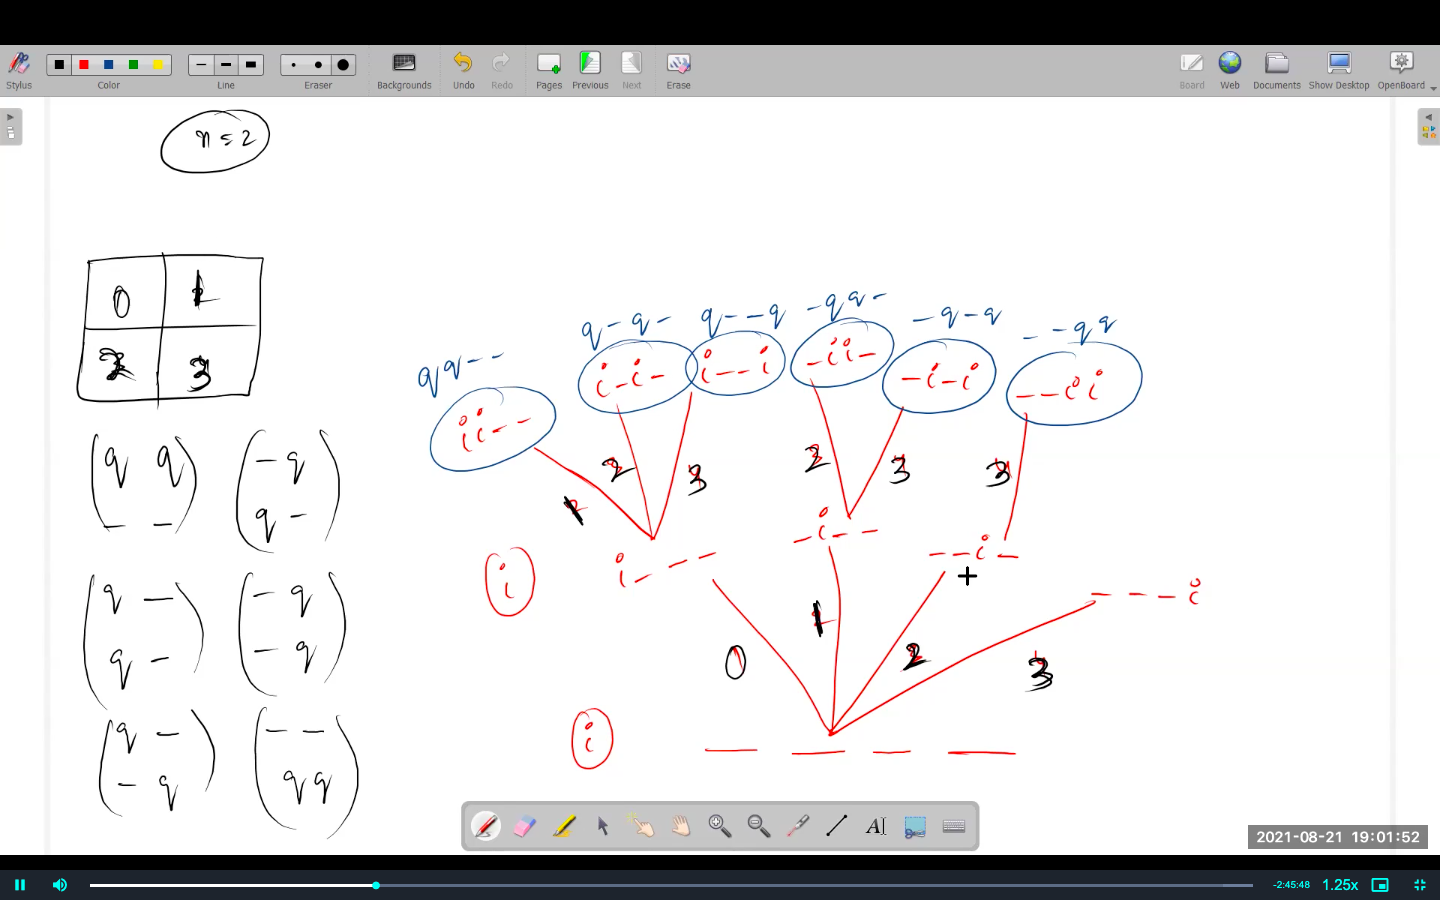 Stylus
Color
Line
Eraser
Backgrounds
Undo
Redo
Pages
Previous
Next
Erase
Board
Web
Documents
Show Desktop
OpenBoard
n = 2
0 1
2 3
q q
- -
- q
q -
q -
q -
- q
- q
q -
- q
- -
q q
q q - -
q - q -
q - - q
- q q -
- q - q
- - q q
i i - -
i - i -
i - - i
- i i -
- i - i
- - i i
1 2 3 2 3 3
i
i - - -
- i - -
- - i -
- - - i
0 1 2 3
i
_ _ _ _
AI
2021-08-21 19:01:52
-2:45:48
1.25x